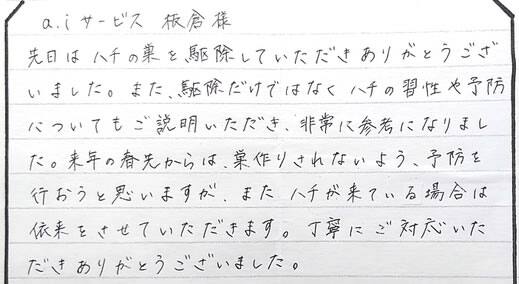 a.iサービス 板倉様
先日はハチの巣を駆除していただきありがとうござ
いました。また、駆除だけではなくハチの習性や予防
についてもご説明いただき、非常に参考になりまし
た。来年の春先からは、巣作りされないよう、予防を
行おうと思いますが、またハチが来ている場合は
依来をさせていただきます。丁寧にご対応いた
だきありがとうございました。